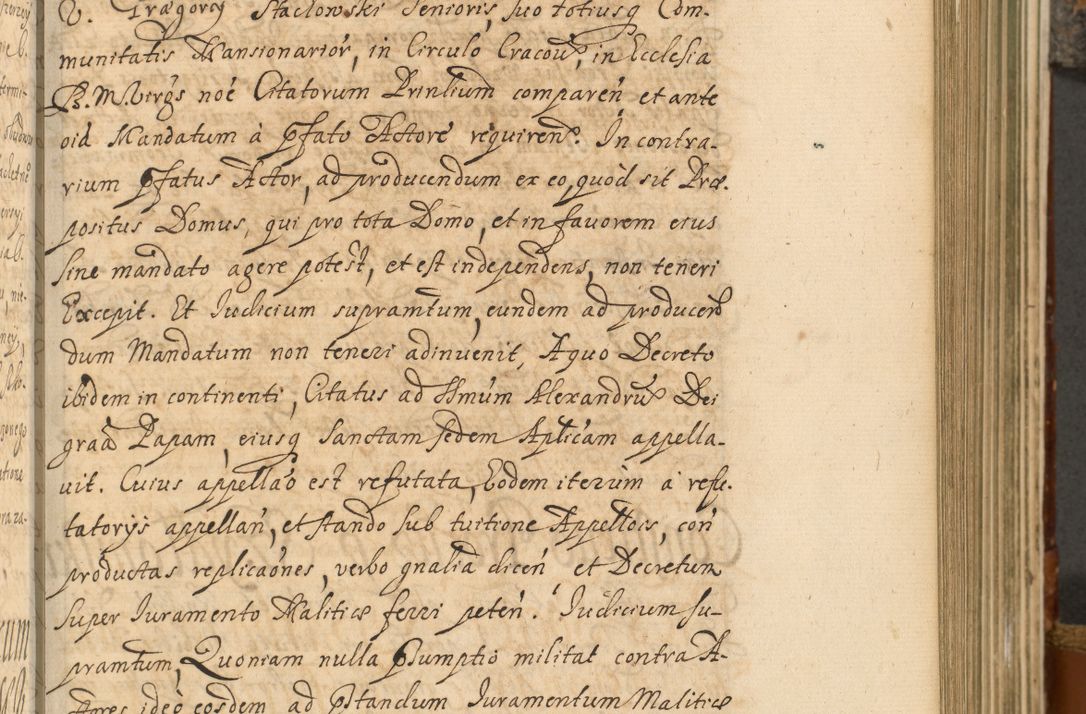 V. Grægorij Stachowski Senioris, suo totiusq Com-
munitatis Mansionariorũ, in Circulo Cracouiẽ, in Ecclesia
B. M. Virgs noẽ Citatorum Prinlium comparen̄, et ante
oid Mandatum à pfato Actore requiren̄. In contra-
rium pfatus Actor, ad producendum ex eo, quod sit Præ-
positus Domus, qui pro tota Domo, et in fauorem eius
sine mandato agere potest, et est independens, non teneri
Excepit. Et Iudicium supramtum, eundem ad producen-
dum Mandatum non teneri adinuenit, A quo Decreto
ibidem in continenti, Citatus ad SSmũm Alexandrũ Dei
graã Papam, eiusq Sanctam Sedem Aplicam appella-
uit. Cuius appellaõ est refutata, Eodem iterum à refu-
tatorijs appellan̄, et stando sub tuitione Appellõis, con
productas replicaõnes, verbo gnalia dicen̄ et Decretum
super Iuramento Malitiæ ferri peten̄. Iudicium su-
pramtum, Quoniam nulla psumptio militat contra A-
ctores ideo eosdem ad pstandum Iuramentum Malitiæ